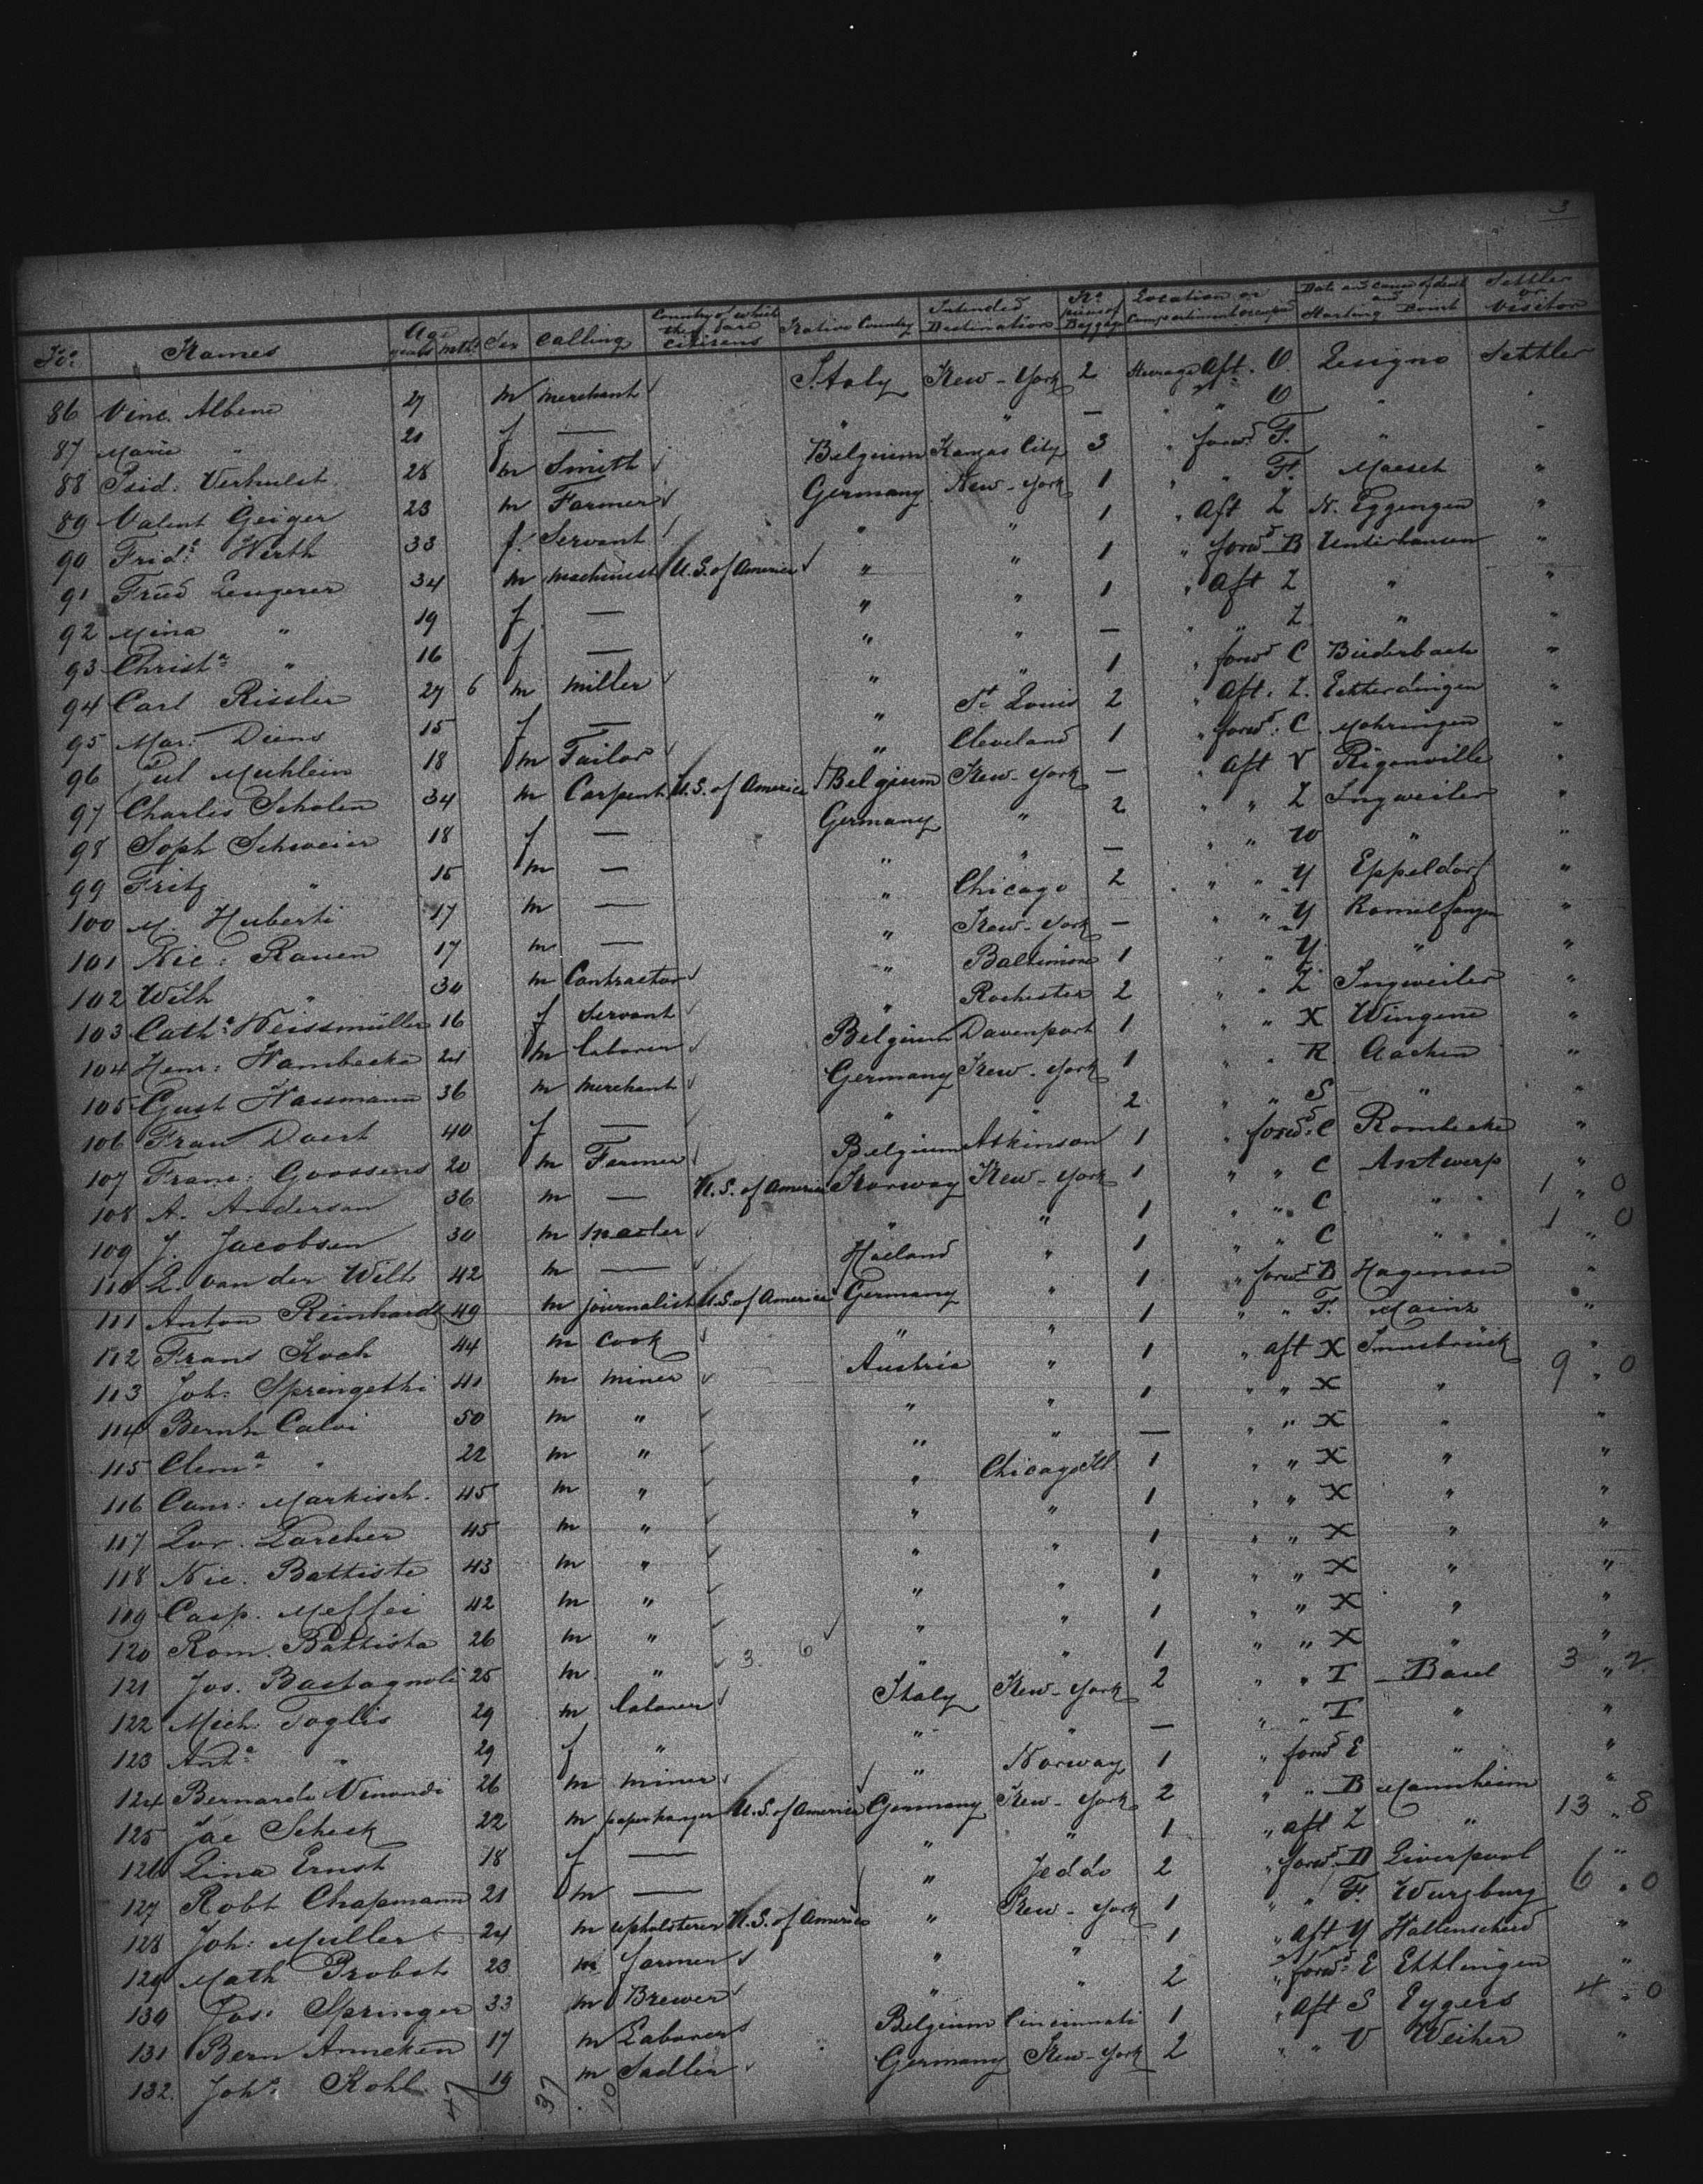 3
No. Names Age years mths Sex Calling Country of which they are citizens Native Country Intended Destination No. pieces of Baggage Location or Compartment occupied Date and cause of death and Starting Point Settler or Visitor
86 Vinc. Albeno 27 m merchant Italy New-York 2 Steerage Aft. O. Settler
87 Marie " 21 f — " " — " " O " "
88 Verhulst 28 m Smith Belgium Kansas City 3 " forwd F. " "
89 Valent Geiger 23 m Farmer Germany New-York 1 " " F. "
90 Frida Werth 33 f. Servant " " 1 " Aft Z N. Eggengen "
91 Fried Lengerer 34 m machinist U.S. of America " " 1 " forwd B Unterhausen "
92 Mina " 19 f — " " 1 " Aft Z " "
93 Christa " 16 f — " " — " " Z " "
94 Carl Rissler 27 6 m miller " " 1 " forwd C Biederbach "
95 Mar. Diens 15 f — " St. Louis 2 " Aft. Z. Echterdingen "
96 Muhlein 18 m Tailor " Cleveland 1 " forwd: C. Mohringen "
97 Charles Scholen 34 m Carpent U.S. of America Belgium New-York — " Aft V Rigonville "
98 Soph Schweier 18 f — Germany " 2 " " Z Ingweiler "
99 Fritz " 15 m — " " — " " W " "
100 M. Huberti 17 m — " Chicago 2 " " Y Eppeldorf "
101 Nic: Rauen 17 m — " New-York — " " Y "
102 Wilh " 30 m Contractor " Baltimore 1 " " Y " "
103 Catha Weissmüller 16 f Servant " Rochester 2 " " Z Ingweiler "
104 Henr: Hambecka 24 m laborer Belgium Davenport 1 " " X Wingene "
105 Gust Hassmann 36 m merchant Germany New-York 1 " " R Aachen "
106 Frau Daert 40 f — " " 2 " " S " "
107 Franc: Goossens 20 m Farmer Belgium Atkinson 1 " forwd: C Rombecke "
108 A. Anderson 36 m — U.S. of America Norway New-York 1 " " C Antwerp " 1 0
109 J. Jacobsen 30 m master " " 1 " " C " " 1 0
110 L. van der Welt 42 m — Holland " 1 " " C " "
111 Anton Reinhardt 49 m journalist U.S. of America Germany " 1 " forwd B Hagenau "
112 Frans Koch 44 m cook " " 1 " " F. Mainz "
113 Joh. Springethi 41 m miner Austria " 1 " aft X Innsbruck " 9 0
114 Bernh Calvi 50 m " " " 1 " " X " "
115 Clema " 22 m " " " — " " X " "
116 Canr: Markisch. 45 m " " Chicago Ill. 1 " " X " "
117 Lor. Larcher 45 m " " " 1 " " X " "
118 Nic. Battiste 43 m " " " 1 " " X " "
119 Casp. Meffei 42 m " " " 1 " " X " "
120 Rom. Battista 26 m " " " 1 " " X " "
121 Jos. Bastagnoli 25 m " 3. 6 " " 1 " " X " " 3 2
122 Mich: Toglis 29 m laborer Italy New-York 2 " " T Basel "
123 Anta " 29 f " " " — " " T " "
124 Bernardi Vimondi 26 m miner " Norway 1 " forwd E " "
125 Jac Scheck 22 m paperhanger U.S. of America Germany New-York 2 " " B Mannheim " 13 8
126 Lina Ernst 18 f — " " 1 " aft Z " "
127 Robt Chapmann 21 m — " Jeddo 2 " forwd D Liverpool " 6 0
128 Joh: Muller 24 m upholsterer U.S. of America " New-York 1 " " F. Wurzburg "
129 Math Probst 23 m farmer " " 1 " aft Y Hallenscheid "
130 Jos: Springer 33 m Brewer " " 2 " forwd: E Ettlingen " 4 0
131 Bern Anneken 17 m Laborer Belgium Cincinnati 1 " Aft S Eygers "
132. Joh: Kohl 19 m Sadler Germany New-York 2 " " V Weiher "
47 37 10